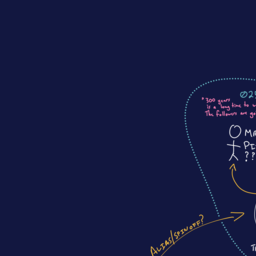 @25
"300 years
is a long time to
The Followers are
MA
PI
??
ALIAS/SPINOFF?
T